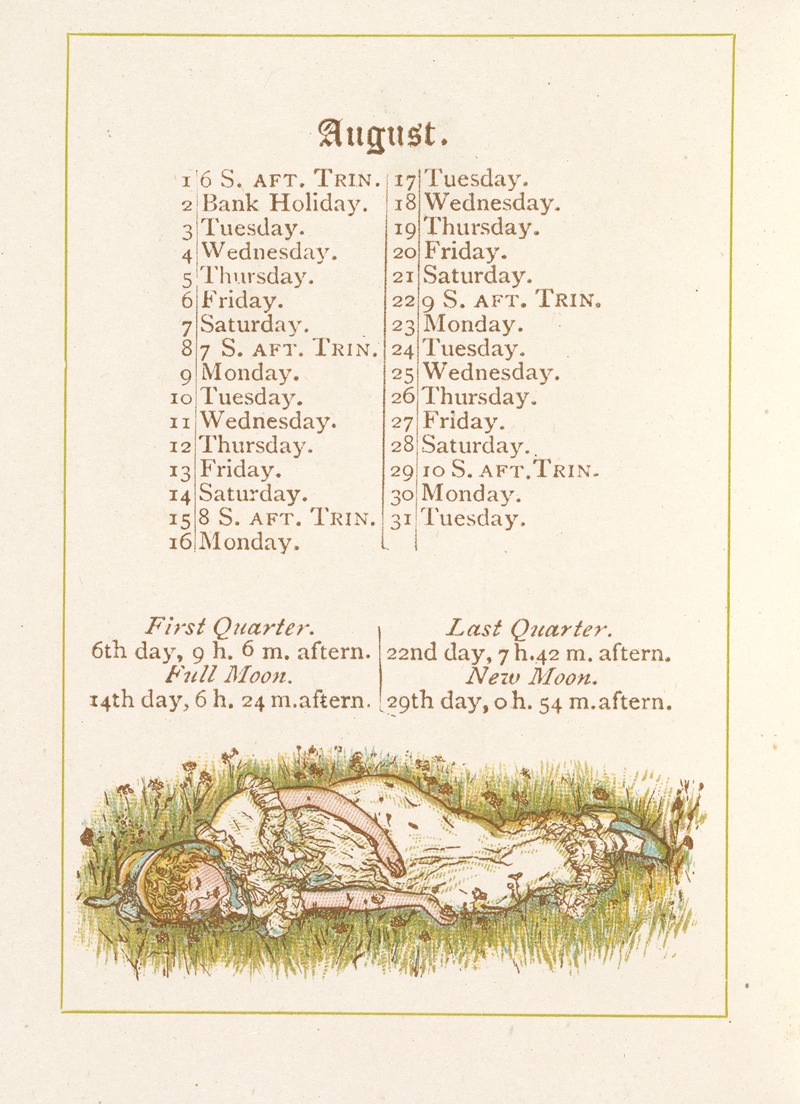 August.
1 6 S. AFT. TRIN.
2 Bank Holiday.
3 Tuesday.
4 Wednesday.
5 Thursday.
6 Friday.
7 Saturday.
8 7 S. AFT. TRIN.
9 Monday.
10 Tuesday.
11 Wednesday.
12 Thursday.
13 Friday.
14 Saturday.
15 8 S. AFT. TRIN.
16 Monday.
17 Tuesday.
18 Wednesday.
19 Thursday.
20 Friday.
21 Saturday.
22 9 S. AFT. TRIN.
23 Monday.
24 Tuesday.
25 Wednesday.
26 Thursday.
27 Friday.
28 Saturday.
29 10 S. AFT. TRIN.
30 Monday.
31 Tuesday.
First Quarter.
6th day, 9 h. 6 m. aftern.
Full Moon.
14th day, 6 h. 24 m. aftern.
Last Quarter.
22nd day, 7 h. 42 m. aftern.
New Moon.
29th day, 0 h. 54 m. aftern.